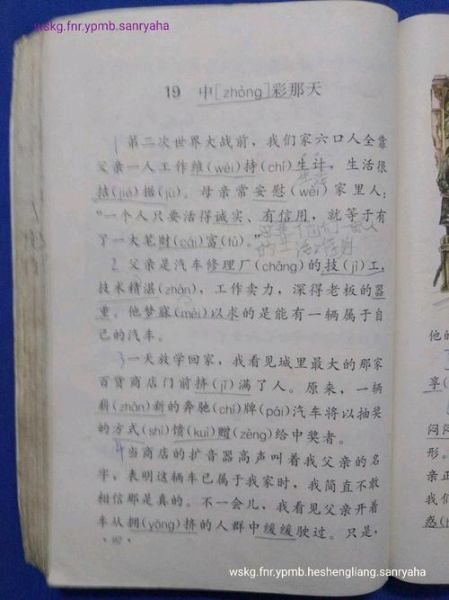 wskg.fnr.ypmb.sanryaha
19 中[zhòng]彩那天
1 第二次世界大战前，我们家六口人全靠
父亲一人工作维(wéi)持(chí)生计，生活很
拮(jié)据(jū)。母亲常安慰(wèi)家里人：
“一个人只要活得诚实、有信用，就等于有
了一大笔财(cái)富(fù)。”
2 父亲是汽车修理厂(chǎng)的技(jì)工，
技术精湛(zhàn)，工作卖力，深得老板的器
重。他梦寐(mèi)以求的是能有一辆属于自
己的汽车。
3 一天放学回家，我看见城里最大的那家
百货商店门前挤(jǐ)满了人。原来，一辆
崭(zhǎn)新的奔驰(chí)牌(pái)汽车将以抽奖
的方式(shì)馈(kuì)赠(zèng)给中奖者。
4 当商店的扩音器高声叫着我父亲的名
字，表明这辆车已属于我家时，我简直不敢
相信那是真的。不一会儿，我看见父亲开着
车从拥(yōng)挤的人群中缓缓驶过。只是，
他的
享(
闷闷
形。
亲正
我们
惑(h
wskg.fnr.ypmb.heshengliang.sanryaha